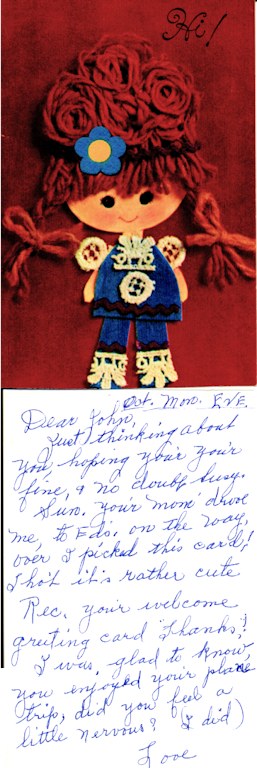 Hi!
Oct. Mon. Eve.
Dear John,
Just thinking about
you, hoping your your
fine, & no doubt busy.
Sun. your mom drove
me, to Ed's. on the way,
over I picked this card!
I hot it's rather cute
Rec. your welcome
greeting card Thanks!
I was, glad to know,
you enjoyed your plane
trip, did you feel a
little nervous? (I did)
Love